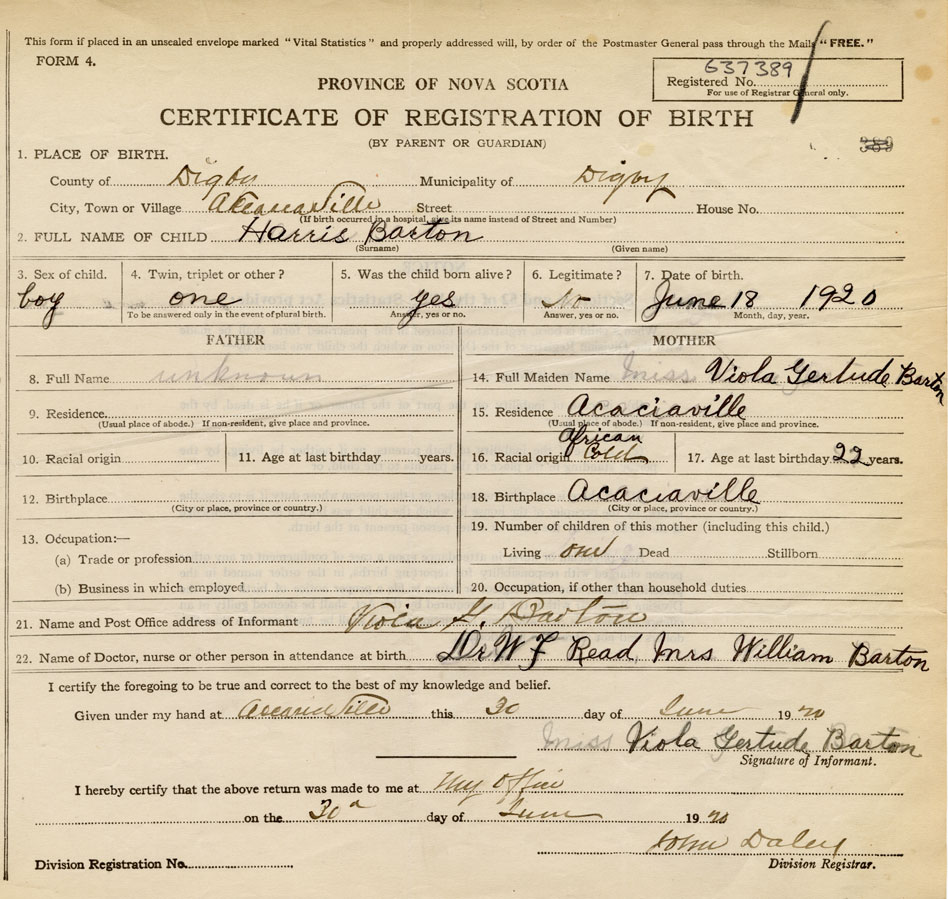 This form if placed in an unsealed envelope marked "Vital Statistics" and properly addressed will, by order of the Postmaster General pass through the Mails "FREE."
FORM 4.
637389
Registered No.
For use of Registrar General only.
PROVINCE OF NOVA SCOTIA
CERTIFICATE OF REGISTRATION OF BIRTH
(BY PARENT OR GUARDIAN)
389
1. PLACE OF BIRTH.
County of Digby Municipality of Digby
City, Town or Village Acaciaville Street House No.
(If birth occurred in a hospital, give its name instead of Street and Number)
2. FULL NAME OF CHILD Harris Barton
(Surname) (Given name)
3. Sex of child. 4. Twin, triplet or other? 5. Was the child born alive? 6. Legitimate? 7. Date of birth.
boy one yes No June 18 1920
To be answered only in the event of plural birth. Answer, yes or no. Answer, yes or no. Month, day, year.
FATHER MOTHER
8. Full Name unknown 14. Full Maiden Name Miss Viola Gertude Barton
9. Residence 15. Residence Acaciaville
(Usual place of abode.) If non-resident, give place and province. (Usual place of abode.) If non-resident, give place and province.
African
10. Racial origin 11. Age at last birthday years. 16. Racial origin Cold 17. Age at last birthday 22 years.
12. Birthplace 18. Birthplace Acaciaville
(City or place, province or country.) (City or place, province or country.)
13. Occupation:— 19. Number of children of this mother (including this child.)
(a) Trade or profession Living one Dead Stillborn
(b) Business in which employed 20. Occupation, if other than household duties
21. Name and Post Office address of Informant Viola G. Barton
22. Name of Doctor, nurse or other person in attendance at birth Dr W F Read, Mrs William Barton
I certify the foregoing to be true and correct to the best of my knowledge and belief.
Given under my hand at Acaciaville this 30 day of June 1920
Miss Viola Gertude Barton
Signature of Informant.
I hereby certify that the above return was made to me at My Office
on the 30 day of June 1920
John Daley
Division Registration No. Division Registrar.